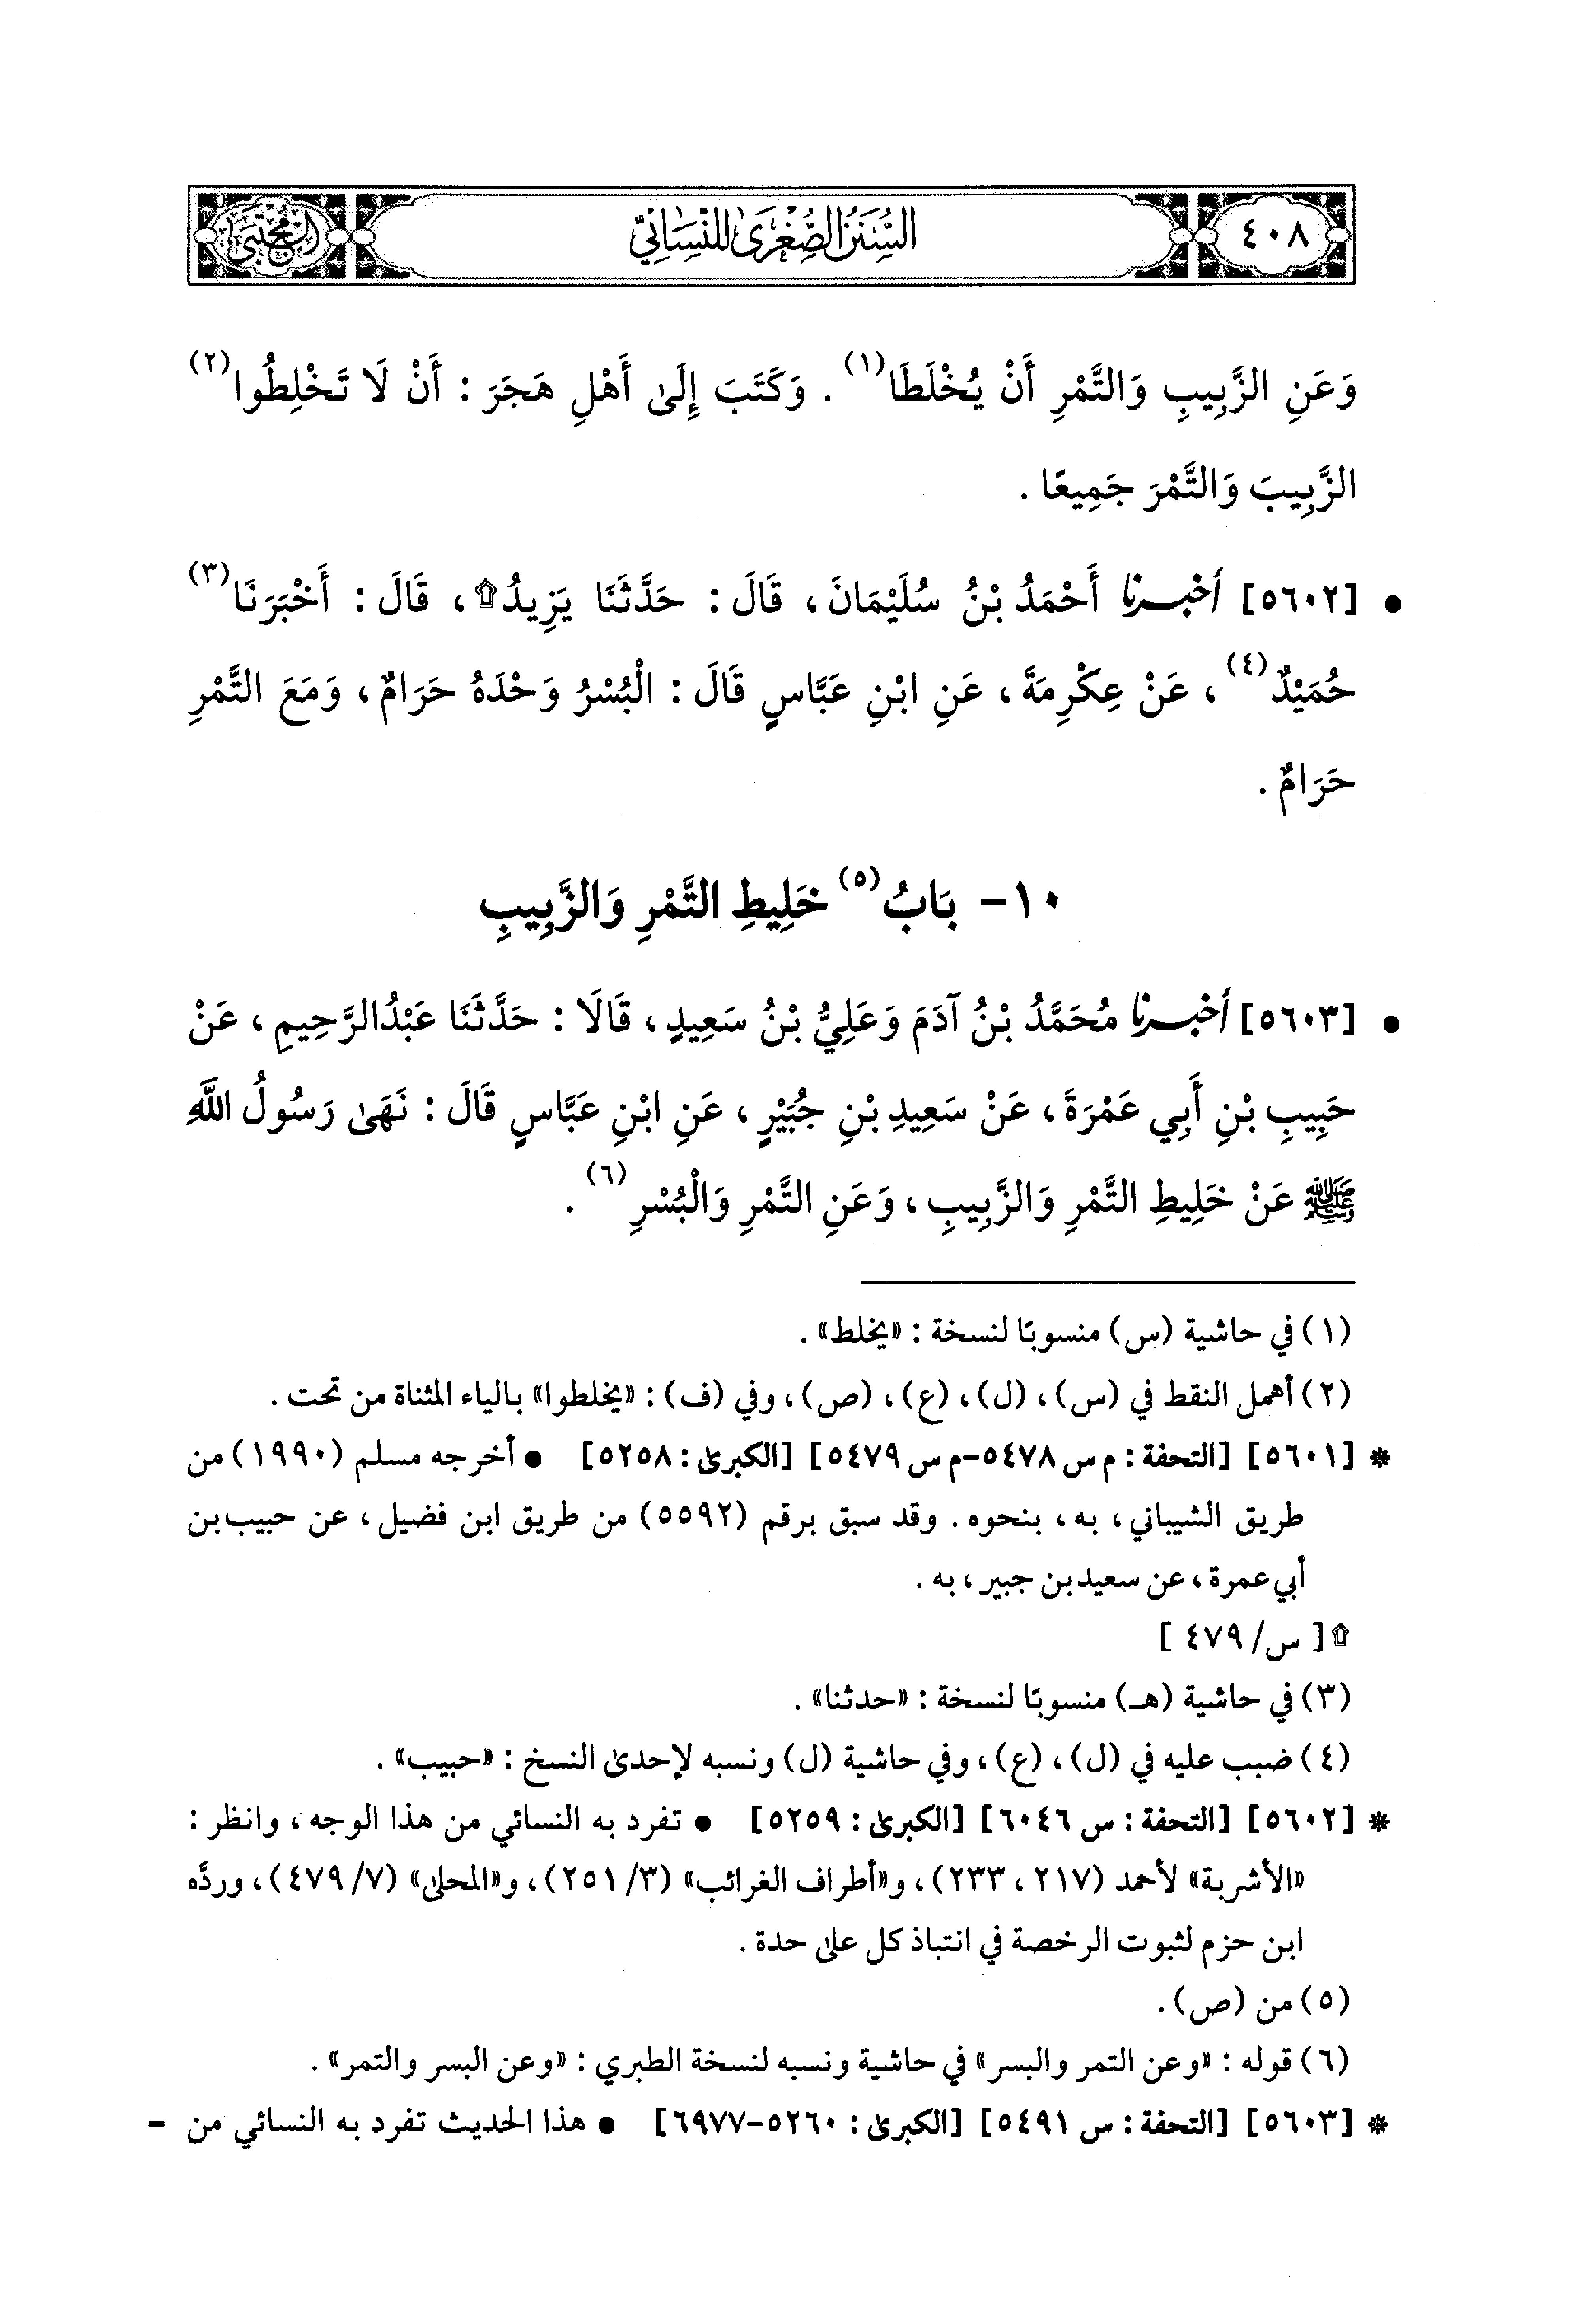 ٤٠٨
السُّنَنُ الصُّغْرَىٰ لِلنَّسَائِيِّ
المجتبى
وَعَنِ الزَّبِيبِ وَالتَّمْرِ أَنْ يُخْلَطَا(١) . وَكَتَبَ إِلَىٰ أَهْلِ هَجَرَ : أَنْ لَا تَخْلِطُوا(٢)
الزَّبِيبَ وَالتَّمْرَ جَمِيعًا .
• [٥٦٠٢] أخبرنا أَحْمَدُ بْنُ سُلَيْمَانَ، قَالَ : حَدَّثَنَا يَزِيدُ۩، قَالَ : أَخْبَرَنَا(٣)
حُمَيْدٌ(٤)، عَنْ عِكْرِمَةَ، عَنِ ابْنِ عَبَّاسٍ قَالَ : الْبُسْرُ وَحْدَهُ حَرَامٌ، وَمَعَ التَّمْرِ
حَرَامٌ .
١٠- بَابُ(٥) خَلِيطِ التَّمْرِ وَالزَّبِيبِ
• [٥٦٠٣] أخبرنا مُحَمَّدُ بْنُ آدَمَ وَعَلِيُّ بْنُ سَعِيدٍ، قَالَا : حَدَّثَنَا عَبْدُالرَّحِيمِ، عَنْ
حَبِيبِ بْنِ أَبِي عَمْرَةَ، عَنْ سَعِيدِ بْنِ جُبَيْرٍ، عَنِ ابْنِ عَبَّاسٍ قَالَ : نَهَىٰ رَسُولُ اللَّهِ
ﷺ عَنْ خَلِيطِ التَّمْرِ وَالزَّبِيبِ، وَعَنِ التَّمْرِ وَالْبُسْرِ(٦) .
(١) في حاشية (س) منسوبًا لنسخة : «يخلط» .
(٢) أهمل النقط في (س)، (ل)، (ع)، (ص)، وفي (ف) : «يخلطوا» بالياء المثناة من تحت .
* [٥٦٠١] [التحفة : م س ٥٤٧٨-م س ٥٤٧٩] [الكبرىٰ : ٥٢٥٨] • أخرجه مسلم (١٩٩٠) من
طريق الشيباني، به، بنحوه . وقد سبق برقم (٥٥٩٢) من طريق ابن فضيل، عن حبيب بن
أبي عمرة، عن سعيد بن جبير، به .
۩ [ س/ ٤٧٩ ]
(٣) في حاشية (هـ) منسوبًا لنسخة : «حدثنا» .
(٤) ضبب عليه في (ل)، (ع)، وفي حاشية (ل) ونسبه لإحدىٰ النسخ : «حبيب» .
* [٥٦٠٢] [التحفة : س ٦٠٤٦] [الكبرىٰ : ٥٢٥٩] • تفرد به النسائي من هذا الوجه، وانظر :
«الأشربة» لأحمد (٢١٧، ٢٣٣)، و«أطراف الغرائب» (٣/ ٢٥١)، و«المحلىٰ» (٧/ ٤٧٩)، وردَّه
ابن حزم لثبوت الرخصة في انتباذ كل علىٰ حدة .
(٥) من (ص) .
(٦) قوله : «وعن التمر والبسر» في حاشية ونسبه لنسخة الطبري : «وعن البسر والتمر» .
* [٥٦٠٣] [التحفة : س ٥٤٩١] [الكبرىٰ : ٥٢٦٠-٦٩٧٧] • هذا الحديث تفرد به النسائي من =